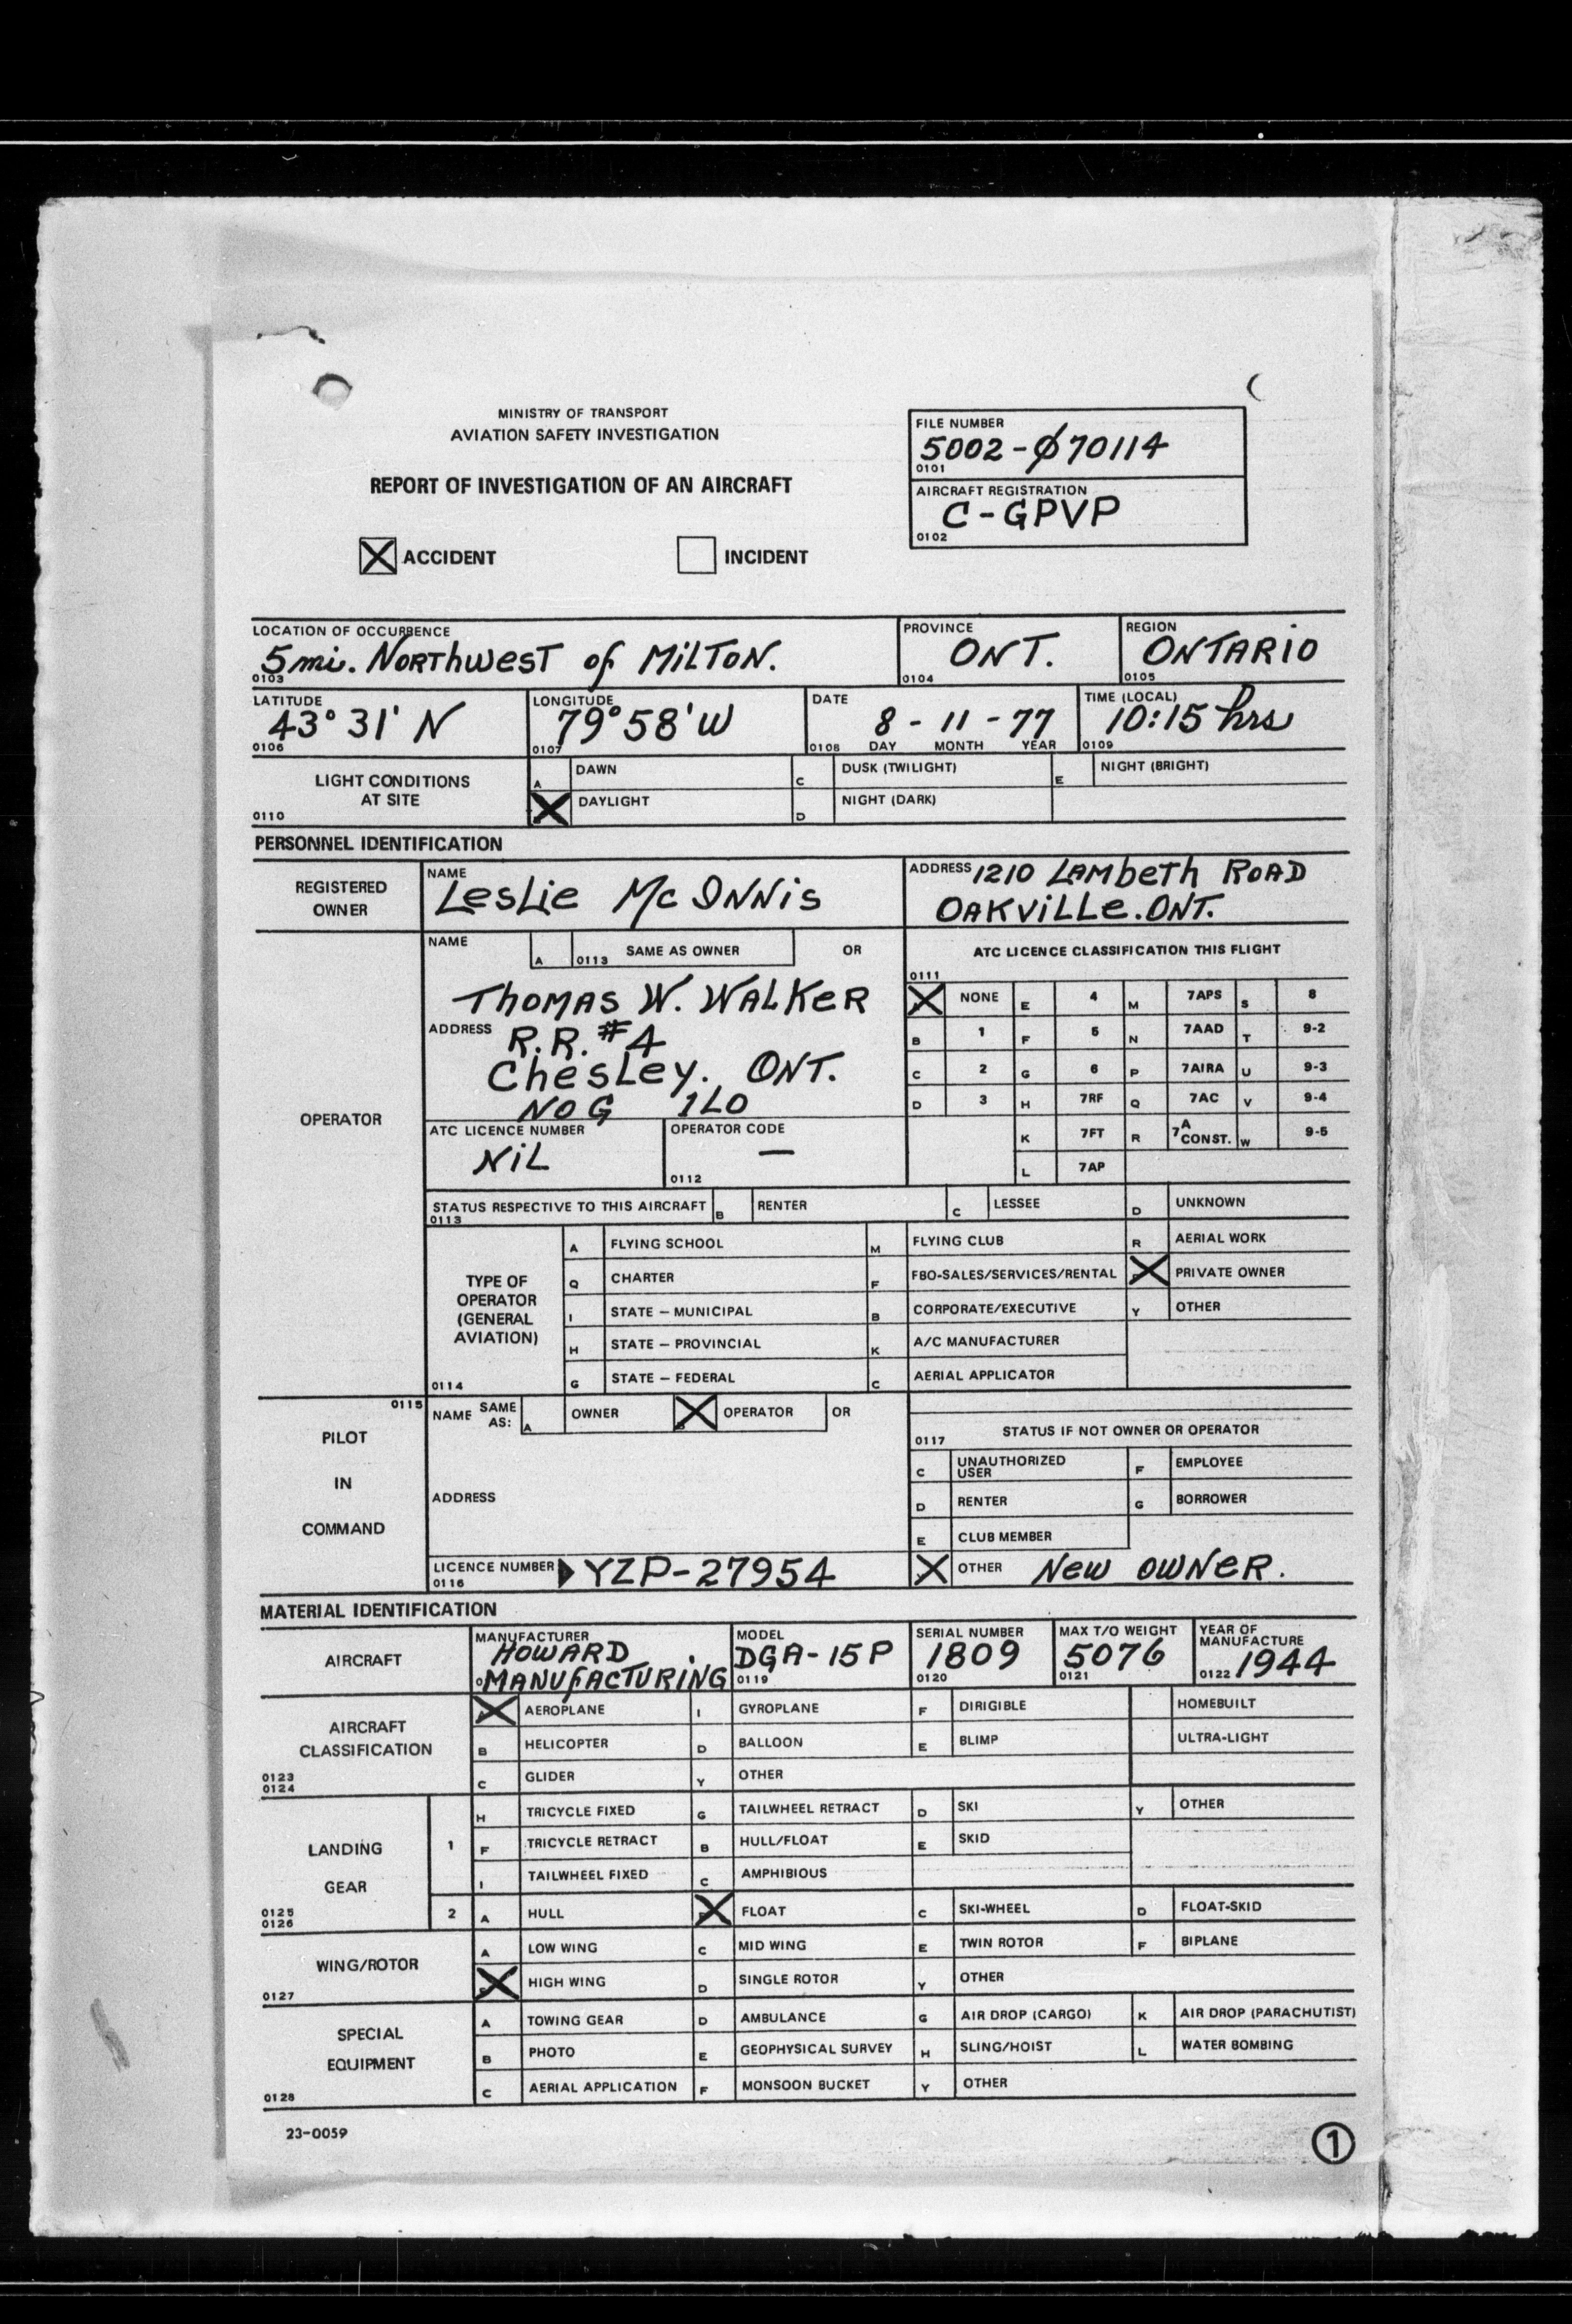 MINISTRY OF TRANSPORT
AVIATION SAFETY INVESTIGATION
REPORT OF INVESTIGATION OF AN AIRCRAFT
FILE NUMBER
5002-Ø70114
0101
AIRCRAFT REGISTRATION
C-GPVP
0102
X ACCIDENT INCIDENT
LOCATION OF OCCURRENCE PROVINCE REGION
5 mi. NORTHWEST of MILTON. ONT. ONTARIO
0103 0104 0105
LATITUDE LONGITUDE DATE TIME (LOCAL)
43° 31' N 79° 58' W 8 - 11 - 77 10:15 hrs
0106 0107 0108 DAY MONTH YEAR 0109
LIGHT CONDITIONS AT SITE
0110
A DAWN C DUSK (TWILIGHT) E NIGHT (BRIGHT)
X DAYLIGHT D NIGHT (DARK)
PERSONNEL IDENTIFICATION
REGISTERED OWNER
NAME
LESLIE McINNIS
ADDRESS 1210 LAMBETH ROAD
OAKVILLE. ONT.
OPERATOR
NAME A 0113 SAME AS OWNER OR
THOMAS W. WALKER
ADDRESS R.R. #4
CHESLEY. ONT.
NOG 1L0
ATC LICENCE NUMBER OPERATOR CODE
NIL —
0112
ATC LICENCE CLASSIFICATION THIS FLIGHT
0111
X NONE E 4 M 7APS S 8
B 1 F 5 N 7AAD T 9-2
C 2 G 6 P 7AIRA U 9-3
D 3 H 7RF Q 7AC V 9-4
K 7FT R 7A CONST. W 9-5
L 7AP
STATUS RESPECTIVE TO THIS AIRCRAFT B RENTER C LESSEE D UNKNOWN
0113
TYPE OF OPERATOR (GENERAL AVIATION)
0114
A FLYING SCHOOL M FLYING CLUB R AERIAL WORK
Q CHARTER F FBO-SALES/SERVICES/RENTAL X PRIVATE OWNER
I STATE – MUNICIPAL B CORPORATE/EXECUTIVE Y OTHER
H STATE – PROVINCIAL K A/C MANUFACTURER
G STATE – FEDERAL C AERIAL APPLICATOR
0115
PILOT IN COMMAND
NAME SAME AS: A OWNER X OPERATOR OR
ADDRESS
LICENCE NUMBER YZP-27954
0116
0117 STATUS IF NOT OWNER OR OPERATOR
C UNAUTHORIZED USER F EMPLOYEE
D RENTER G BORROWER
E CLUB MEMBER
X OTHER NEW OWNER.
MATERIAL IDENTIFICATION
AIRCRAFT
MANUFACTURER MODEL SERIAL NUMBER MAX T/O WEIGHT YEAR OF MANUFACTURE
HOWARD MANUFACTURING DGA-15P 1809 5076 1944
0119 0120 0121 0122
AIRCRAFT CLASSIFICATION
0123
0124
X AEROPLANE I GYROPLANE F DIRIGIBLE HOMEBUILT
B HELICOPTER D BALLOON E BLIMP ULTRA-LIGHT
C GLIDER Y OTHER
LANDING GEAR
0125
0126
1
H TRICYCLE FIXED G TAILWHEEL RETRACT D SKI Y OTHER
F TRICYCLE RETRACT B HULL/FLOAT E SKID
I TAILWHEEL FIXED C AMPHIBIOUS
2 A HULL X FLOAT C SKI-WHEEL D FLOAT-SKID
WING/ROTOR
0127
A LOW WING C MID WING E TWIN ROTOR F BIPLANE
X HIGH WING D SINGLE ROTOR Y OTHER
SPECIAL EQUIPMENT
0128
A TOWING GEAR D AMBULANCE G AIR DROP (CARGO) K AIR DROP (PARACHUTIST)
B PHOTO E GEOPHYSICAL SURVEY H SLING/HOIST L WATER BOMBING
C AERIAL APPLICATION F MONSOON BUCKET Y OTHER
23-0059
1